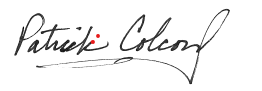 Patrick Colcord